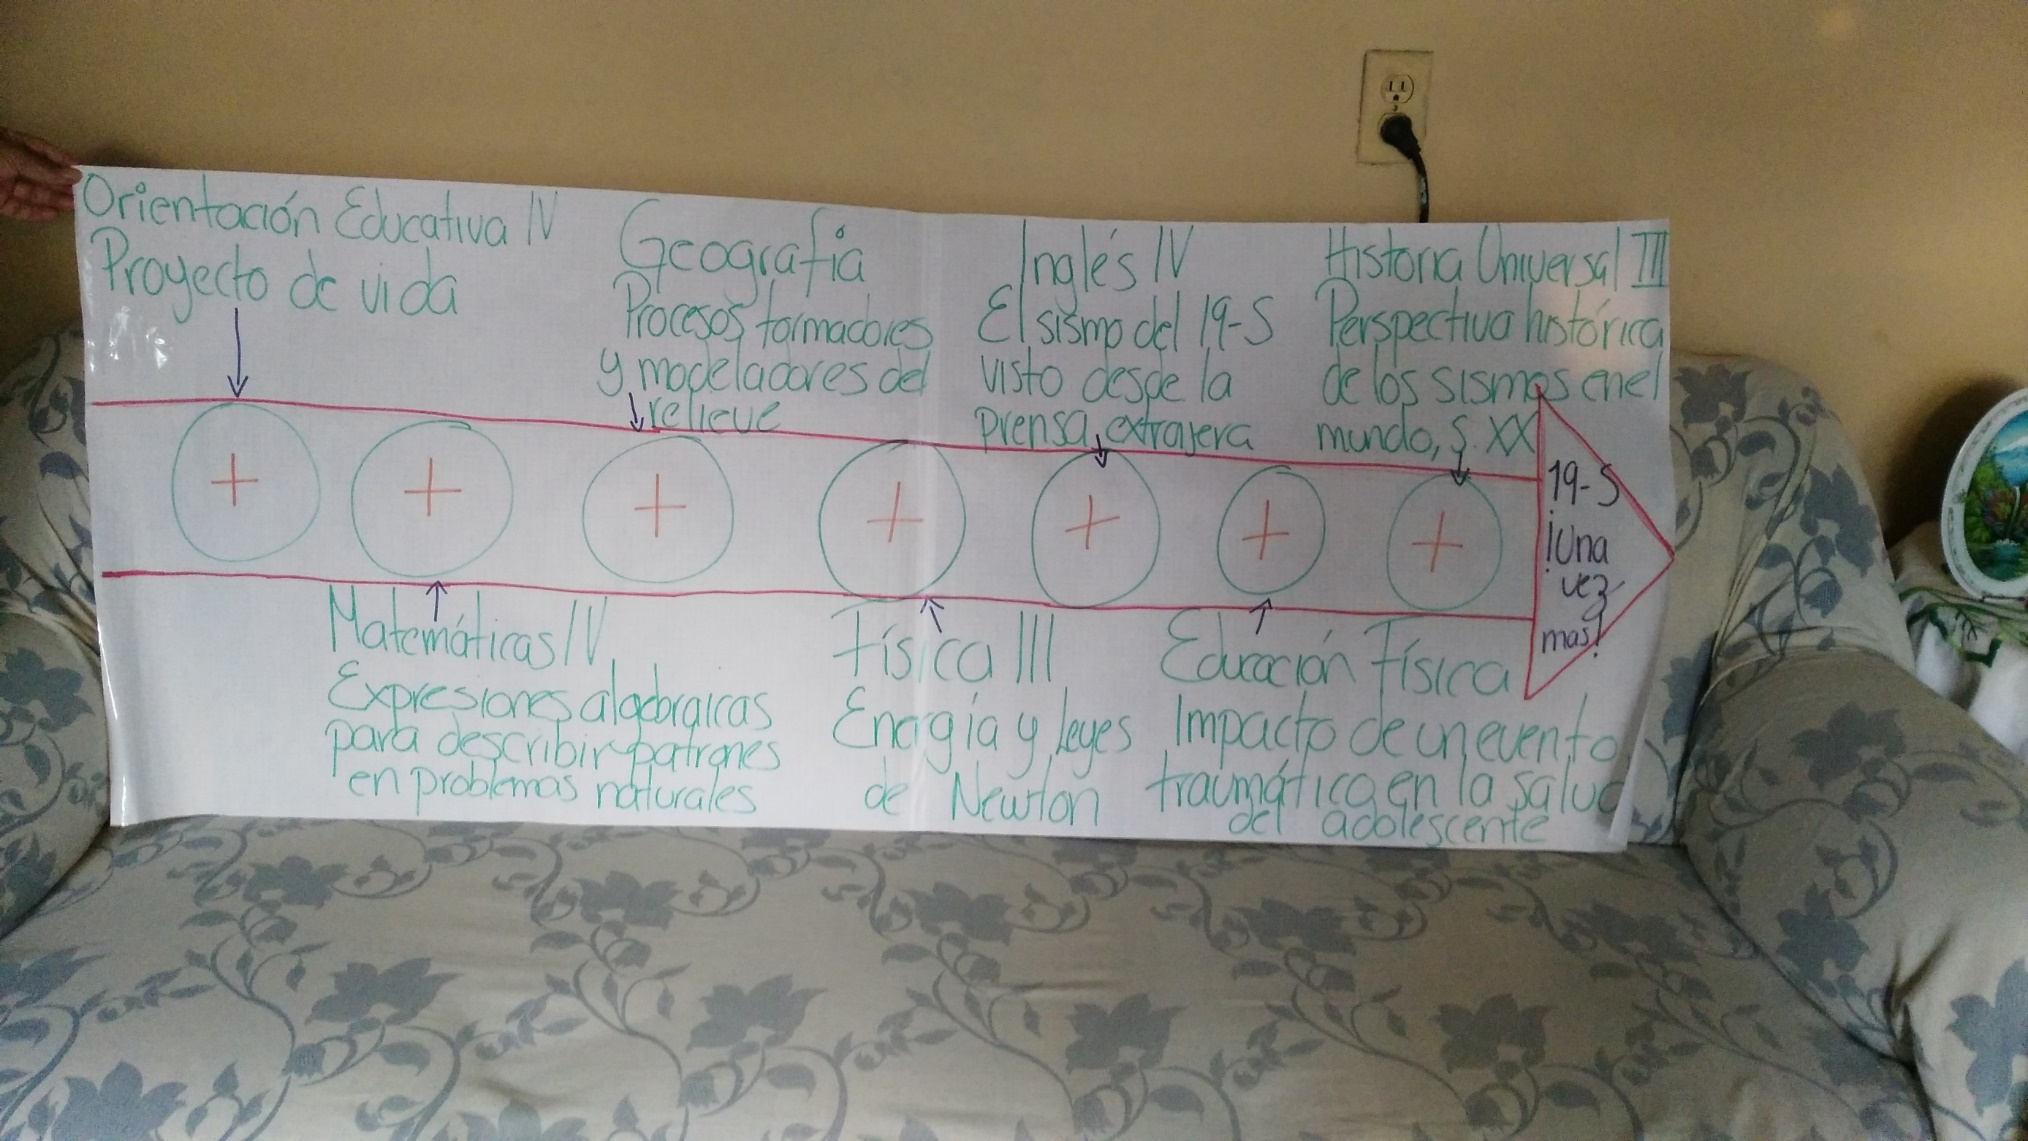 Orientación Educativa IV
Proyecto de vida
Geografía
Procesos formadores
y modeladores del
relieve
Inglés IV
El sismo del 19-S
visto desde la
prensa extrajera
Historia Universal III
Perspectiva histórica
de los sismos en el
mundo, s. XX
+
+
+
+
+
+
+
19-S
¡Una
vez
mas!
Matemáticas IV
Expresiones algebraicas
para describir patrones
en problemas naturales
Física III
Energía y leyes
de Newton
Educación Física
Impacto de un evento
traumático en la salud
del adolescente